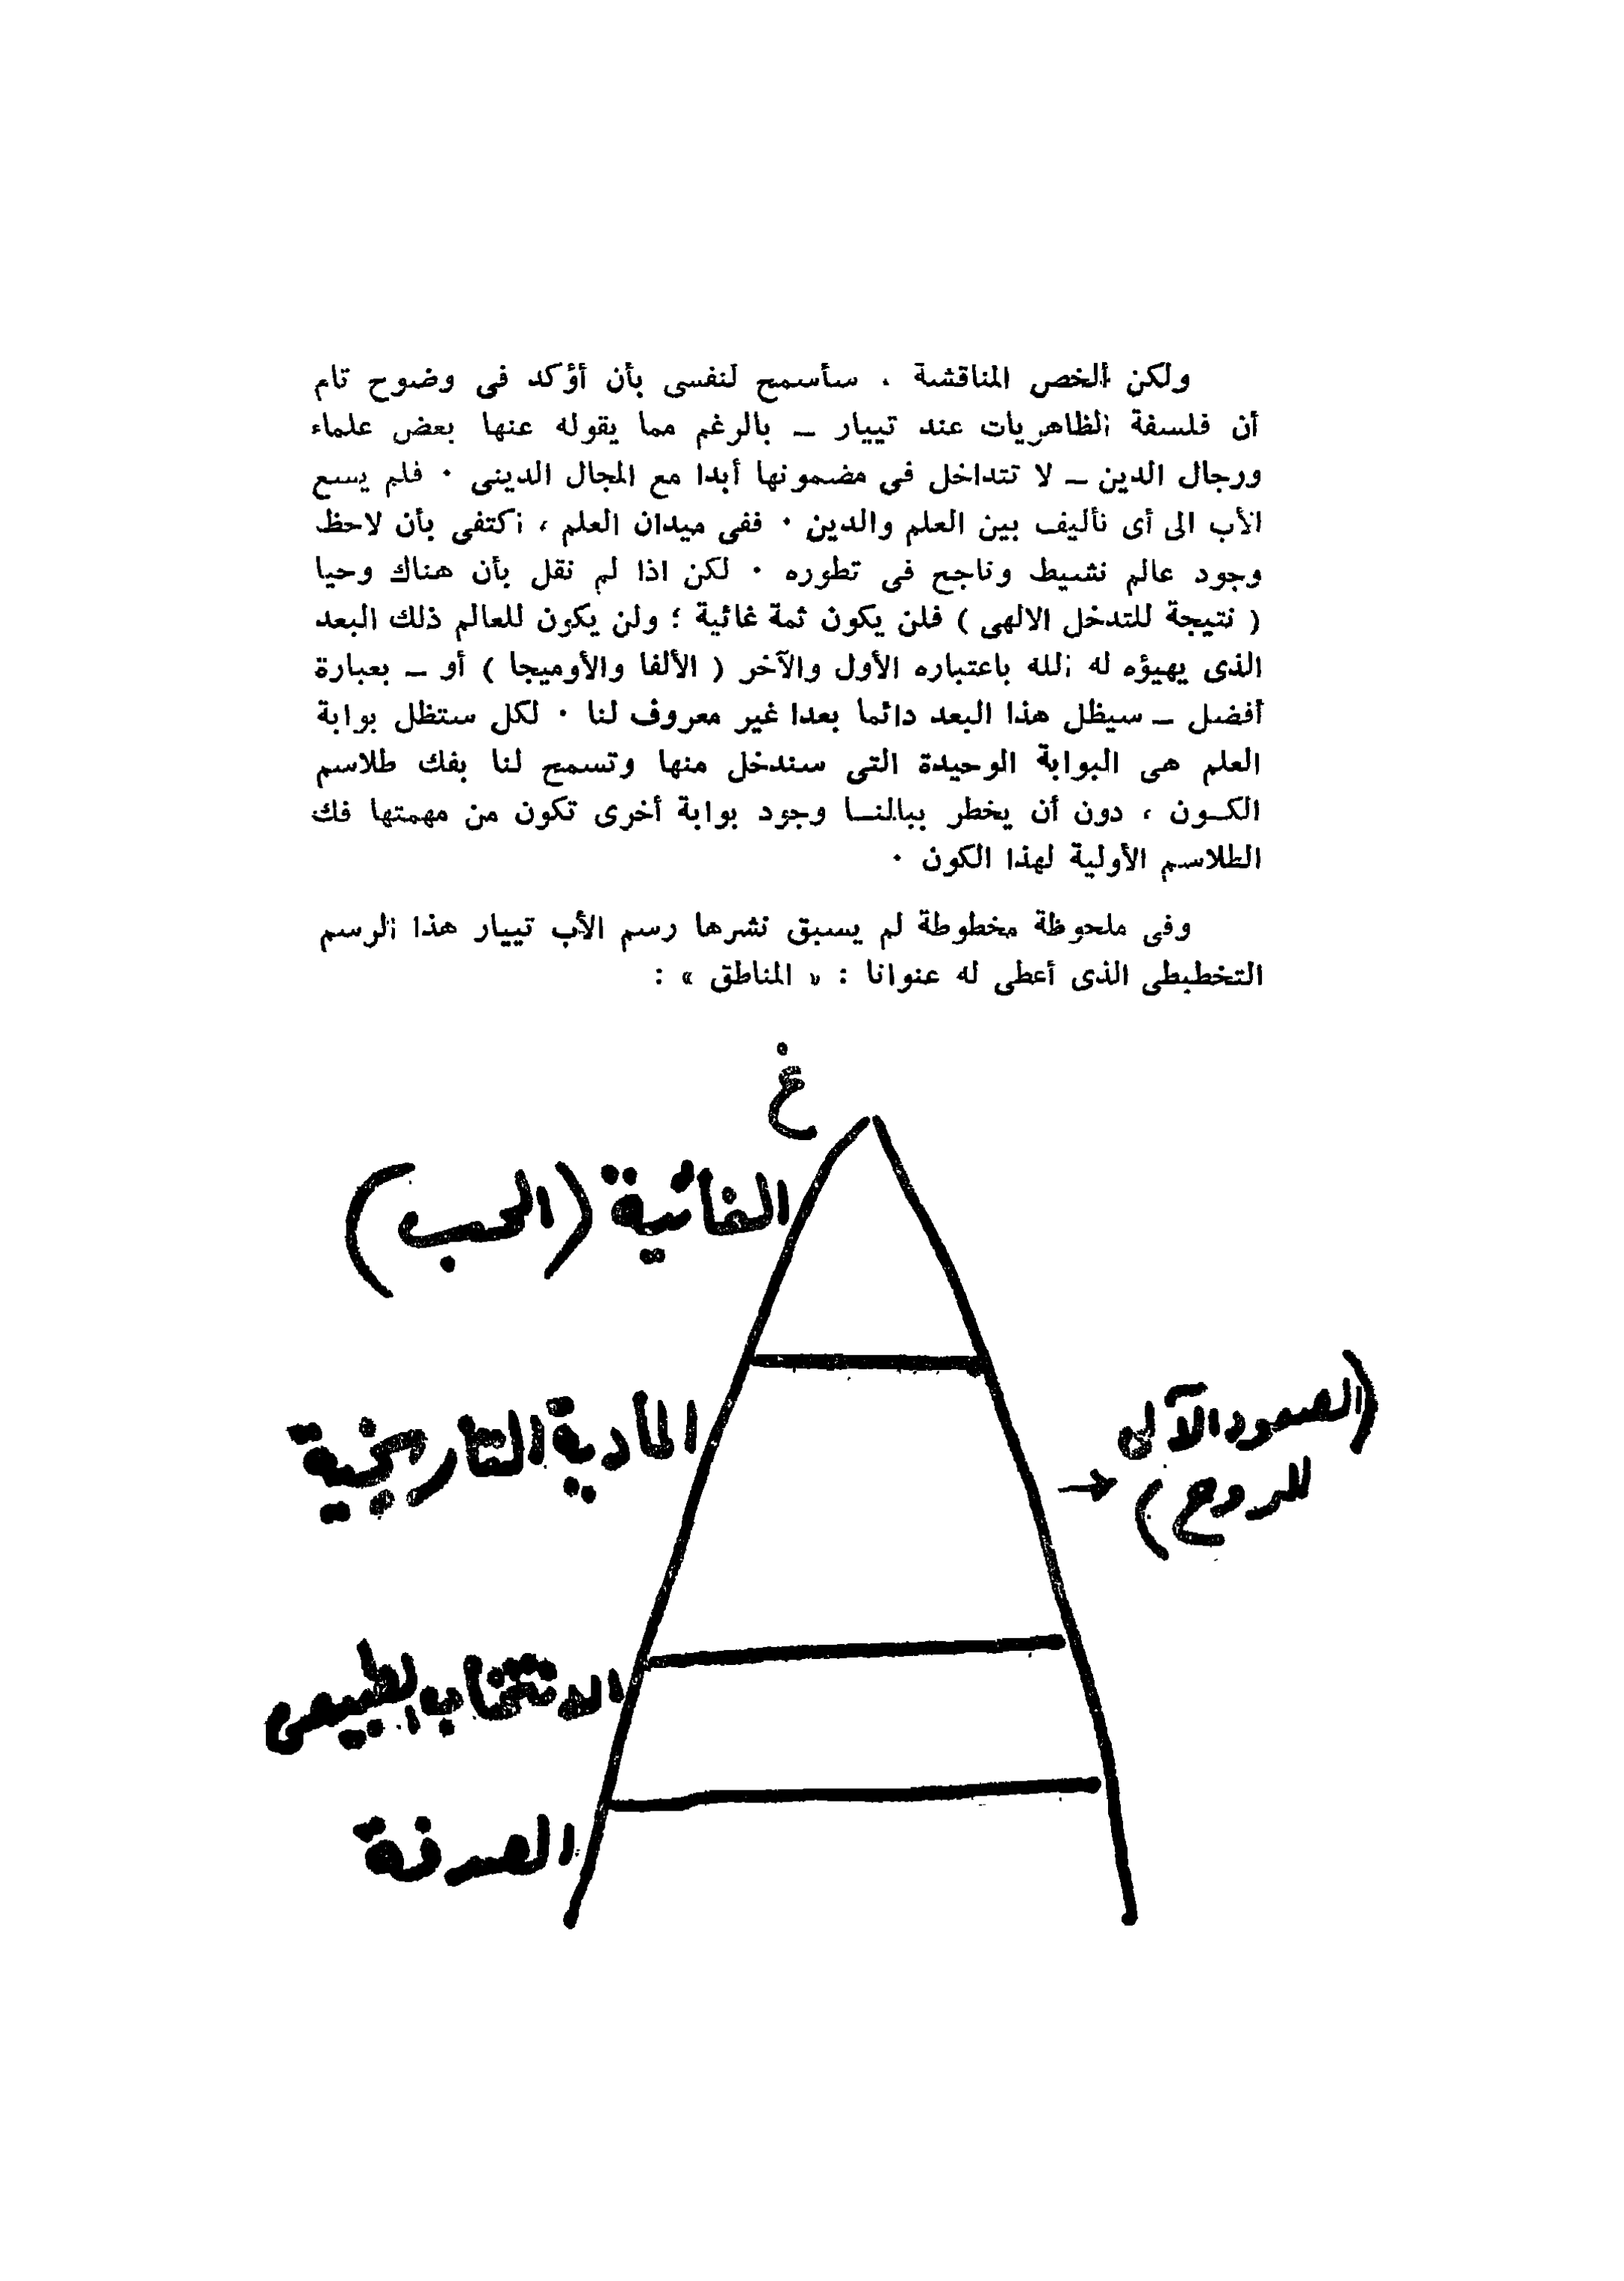 ولكن ألخص المناقشة ، سأسمح لنفسى بأن أؤكد فى وضوح تام
أن فلسفة الظاهريات عند تييار – بالرغم مما يقوله عنها بعض علماء
ورجال الدين – لا تتداخل فى مضمونها أبدا مع المجال الدينى ٠ فلم يسع
الأب الى أى تأليف بين العلم والدين ٠ ففى ميدان العلم ، اكتفى بأن لاحظ
وجود عالم نشيط وناجح فى تطوره ٠ لكن اذا لم نقل بأن هناك وحيا
( نتيجة للتدخل الالهى ) فلن يكون ثمة غائية ؛ ولن يكون للعالم ذلك البعد
الذى يهيؤه له الله باعتباره الأول والآخر ( الألفا والأوميجا ) أو – بعبارة
أفضل – سيظل هذا البعد دائما بعدا غير معروف لنا ٠ لكل ستظل بوابة
العلم هى البوابة الوحيدة التى سندخل منها وتسمح لنا بفك طلاسم
الكـون ، دون أن يخطر ببالنـا وجود بوابة أخرى تكون من مهمتها فك
الطلاسم الأولية لهذا الكون ٠
وفى ملحوظة مخطوطة لم يسبق نشرها رسم الأب تييار هذا الرسم
التخطيطى الذى أعطى له عنوانا : « المناطق » :
غ
الغائية (الحب)
المادية التاريخية
(الصعود الآلى
للروح)
الانتخاب الطبيعى
الصدفة